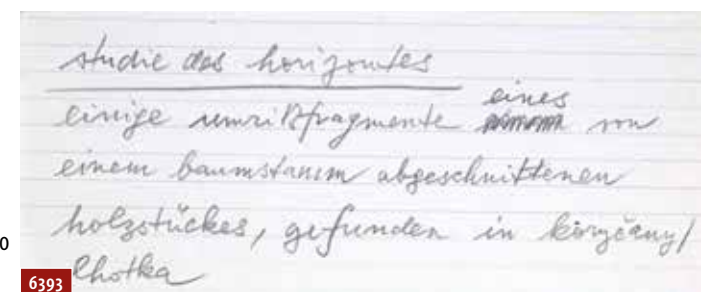 studie des horizontes
einige umrißfragmente eines von
einem baumstamm abgeschnittenen
holzstückes, gefunden in koryčany/
lhotka
0
6393